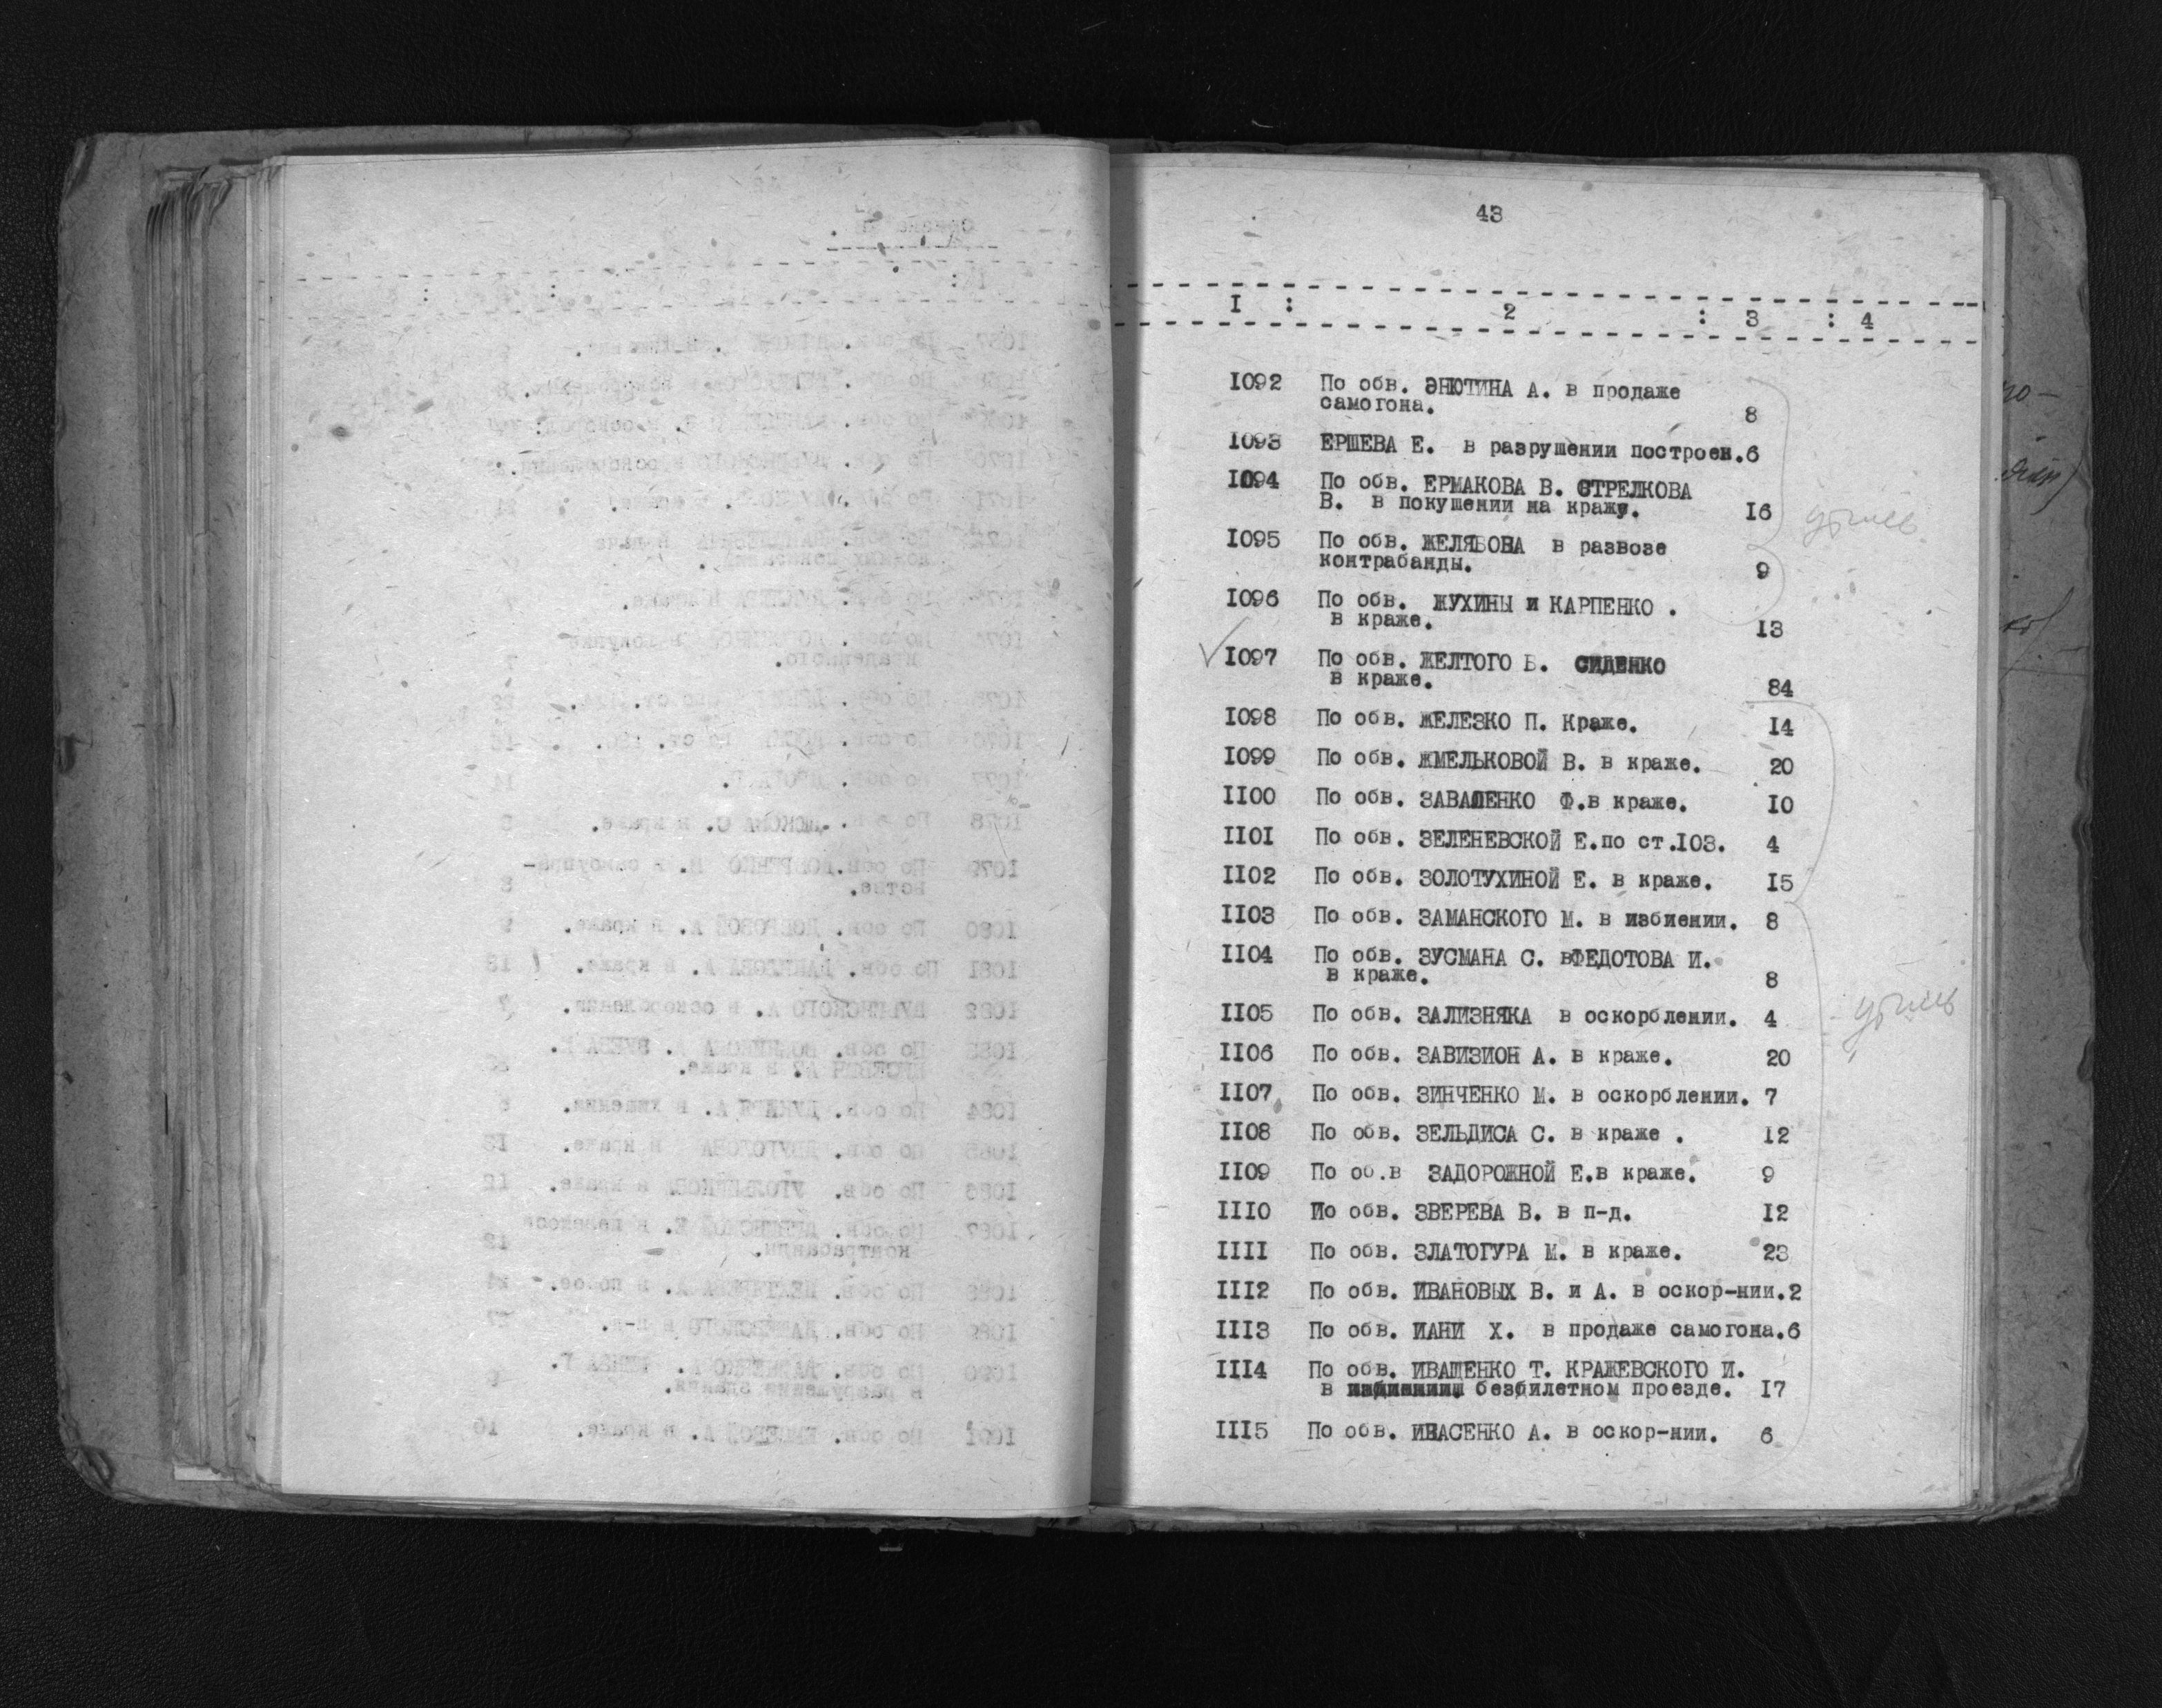 43
I : 2 : 3 : 4
I092 По обв. ЭНЮТИНА А. в продаже
самогона. 8
I093 ЕРШЕВА Е. в разрушении построек.6
I094 По обв. ЕРМАКОВА В. СТРЕЛКОВА
В. в покушении на кражу. I6
I095 По обв. ЖЕЛЯБОВА в развозе
контрабанды. 9
I096 По обв. ЖУХИНЫ и КАРПЕНКО .
в краже. I3
I097 По обв. ЖЕЛТОГО В. СИДЕНКО
в краже. 84
I098 По обв. ЖЕЛЕЗКО П. Краже. I4
I099 По обв. ЖМЕЛЬКОВОЙ В. в краже. 20
II00 По обв. ЗАВАЛЕНКО Ф.в краже. I0
II0I По обв. ЗЕЛЕНЕВСКОЙ Е.по ст.I03. 4
II02 По обв. ЗОЛОТУХИНОЙ Е. в краже. I5
II03 По обв. ЗАМАНСКОГО М. в избиении. 8
II04 По обв. ЗУСМАНА С. вФЕДОТОВА И.
в краже. 8
II05 По обв. ЗАЛИЗНЯКА в оскорблении. 4
II06 По обв. ЗАВИЗИОН А. в краже. 20
II07 По обв. ЗИНЧЕНКО М. в оскорблении. 7
II08 По обв. ЗЕЛЬДИСА С. в краже . I2
II09 По об.в ЗАДОРОЖНОЙ Е.в краже. 9
III0 По обв. ЗВЕРЕВА В. в п-д. I2
IIII По обв. ЗЛАТОГУРА М. в краже. 23
III2 По обв. ИВАНОВЫХ В. и А. в оскор-нии.2
III3 По обв. ИАНИ Х. в продаже самогона.6
III4 По обв. ИВАЩЕНКО Т. КРАЖЕВСКОГО И.
в безбилетном проезде. I7
III5 По обв. ИВАСЕНКО А. в оскор-нии. 6